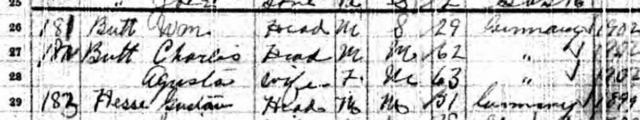 26 181 Butt Wm Head M S 29 Germany 1902
27 182 Butt Charles Head M M 62 " 1902
28 Agusta Wife F M 63 " 1902
29 183 Hesse Gustav Head M M 51 Germany